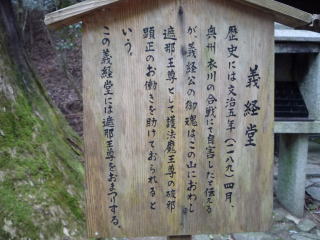 義経堂
歴史には文治五年(一一八九)四月、
奥州衣川の合戦にて自害したと伝える
が、義経公の御魂はこの山におわし
遮那王尊として護法魔王尊の破邪
顕正のお働きを助けておられると
いう。
この義経堂には遮那王尊をおまつりする。